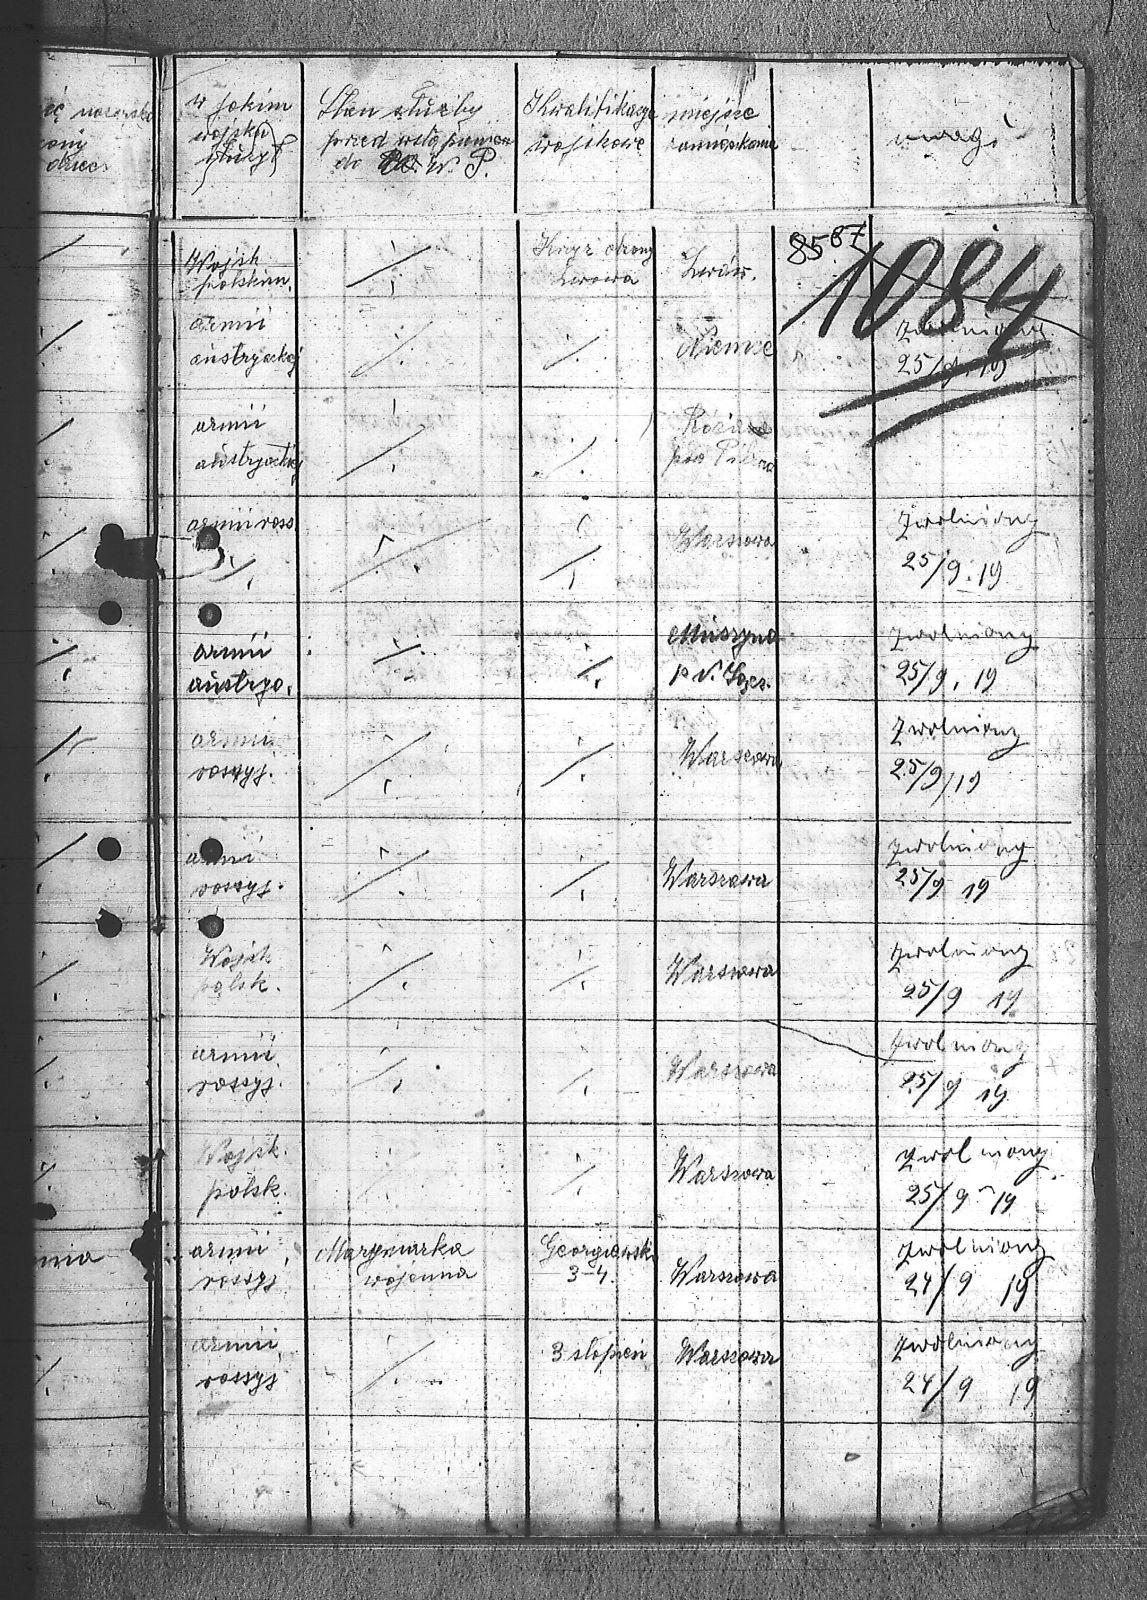 w jakim
wojsku
służył
Stan służby
przed wstąpieniem
do W. P.
Kwalifikacje
wojskowe
miejsce
zamieszkania
uwagi
8587
1084
Wojsk
polskim.
Krzyż obrony
Lwowa
Lwów.
armii
austryackiej
Niemce
zwolniony
25/9. 19
armii
austryackiej
pod
armii ross.
Warszawa
zwolniony
25/9. 19
armii
austrya.
Muszyna
zwolniony
25/9. 19
armii
rossyj.
Warszawa
zwolniony
25/9/19
armii
rossyj.
Warszawa
zwolniony
25/9 19
Wojsk
polsk.
Warszawa
zwolniony
25/9 19
armii
rossyj.
Warszawa
zwolniony
25/9 19
Wojsk.
polsk.
Warszawa
zwolniony
25/9 - 19
armii
rossyj
Marynarka
wojenna
Georgiewski
3-4.
Warszawa
zwolniony
24/9 19
armii
rossyj
3 stopień
Warszawa
zwolniony
24/9 19